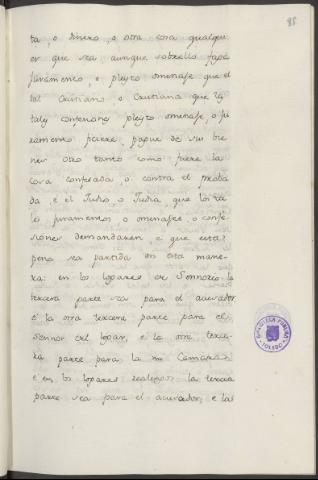 88
ta, o dinero, o otra cosa qualqui
er que sea, aunque sobrello faga
juramento, e pleyto omenaje que el
tal Cristiano o Cristiana que los
tales confesiones pleyto omenaje, o ju
ramento ficiere, pague de sus bie
nes otro tanto como fuere la
cosa confesada, o contra el proba
da, e el Judio, o Judia, que los ta
les juramentos o omenajes, o confe
siones demandaren, e que esta
pena sea partida en esta mane-
ra: en los logares de Sennorio la
tercera parte sea para el acusador
e la otra tercera parte para el
Sennor del logar, e la otra terce-
ra parte para la mi Camara
e en los logares realengos la tercia
parte sea para el acusador, e las
BIBLIOTECA PUBLICA
TOLEDO